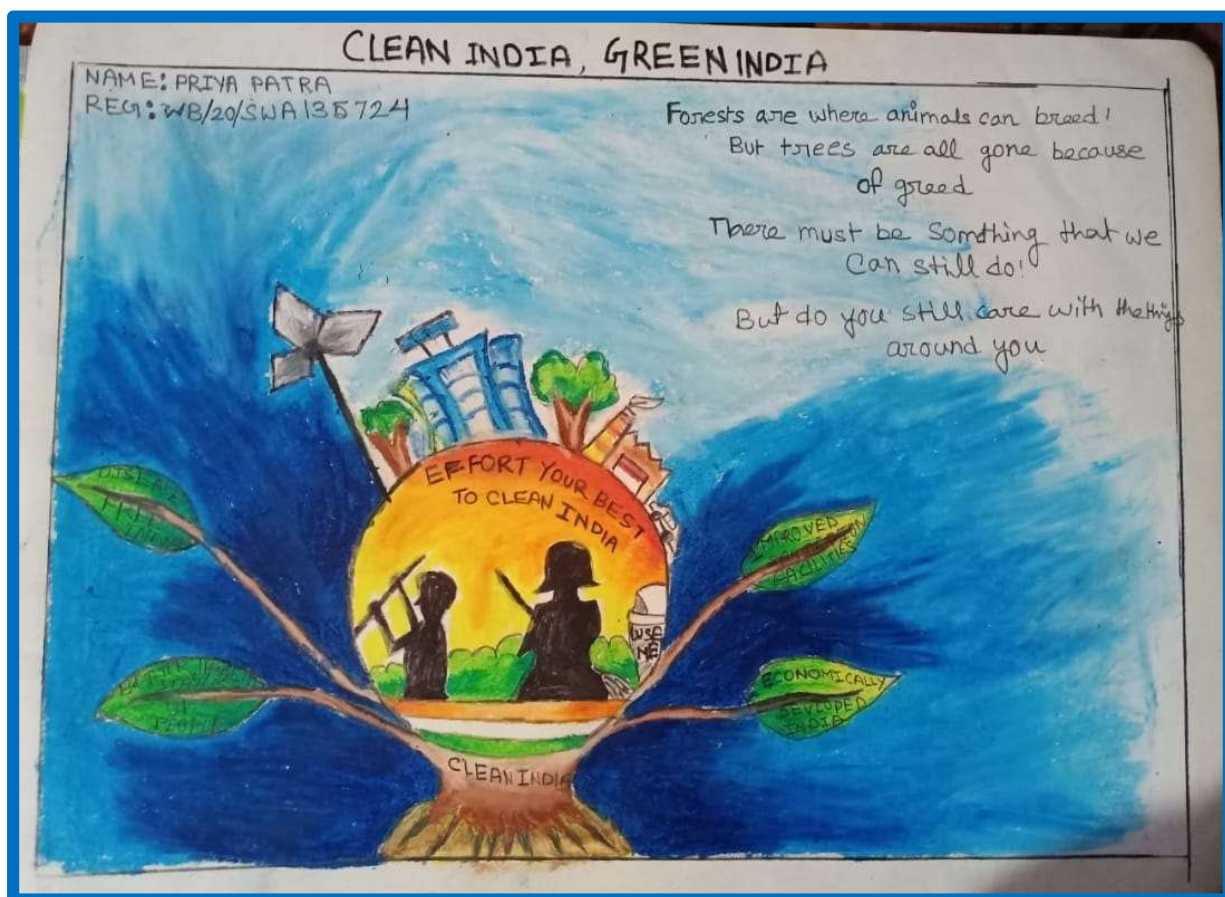 CLEAN INDIA, GREEN INDIA
NAME: PRIYA PATRA
REG: WB/20/SWA135724
Forests are where animals can breed!
But trees are all gone because
of greed
There must be Somthing that we
Can still do!
But do you still care with the things
around you
EFFORT YOUR BEST
TO CLEAN INDIA
USE
ME
DISEASE
FREE
INDIA
IMPROVED
FACILITIES
OF
PEOPLE
ECONOMICALLY
DEVLOPED
INDIA
CLEAN INDIA